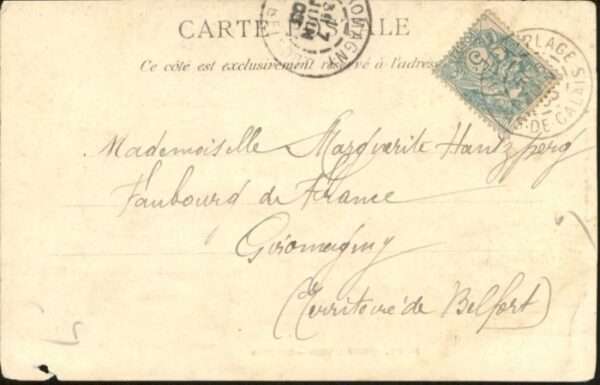 CARTE POSTALE
Ce côté est exclusivement réservé à l'adresse
ROMAGNY
7
JUIN
03
BEL
5
ARLAGE
DE-CALAIS
Mademoiselle Marguerite Hantzperg
Faubourg de France
Giromagny
(Territoire de Belfort)